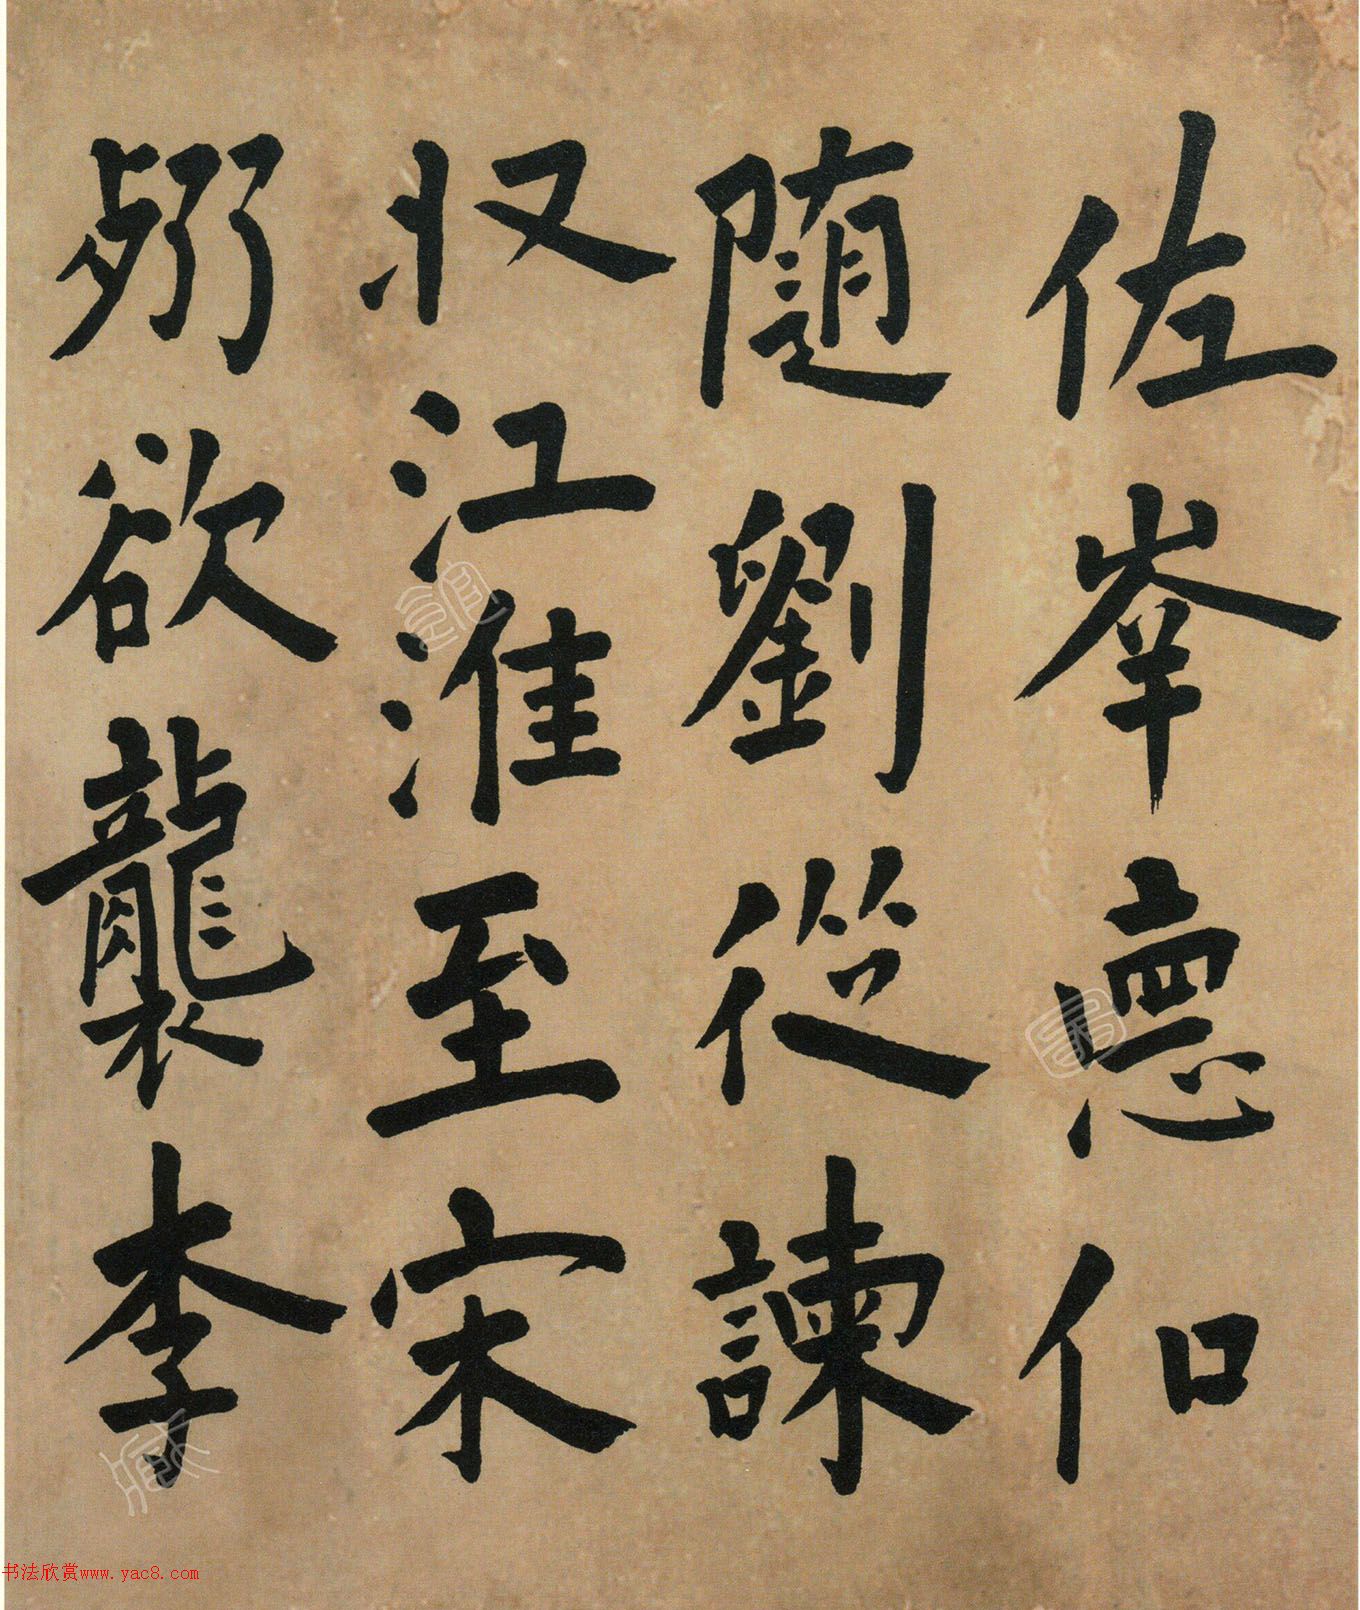 佐
隨劉從諫
収江淮至宋
欲襲李
书法欣赏www.yac8.com